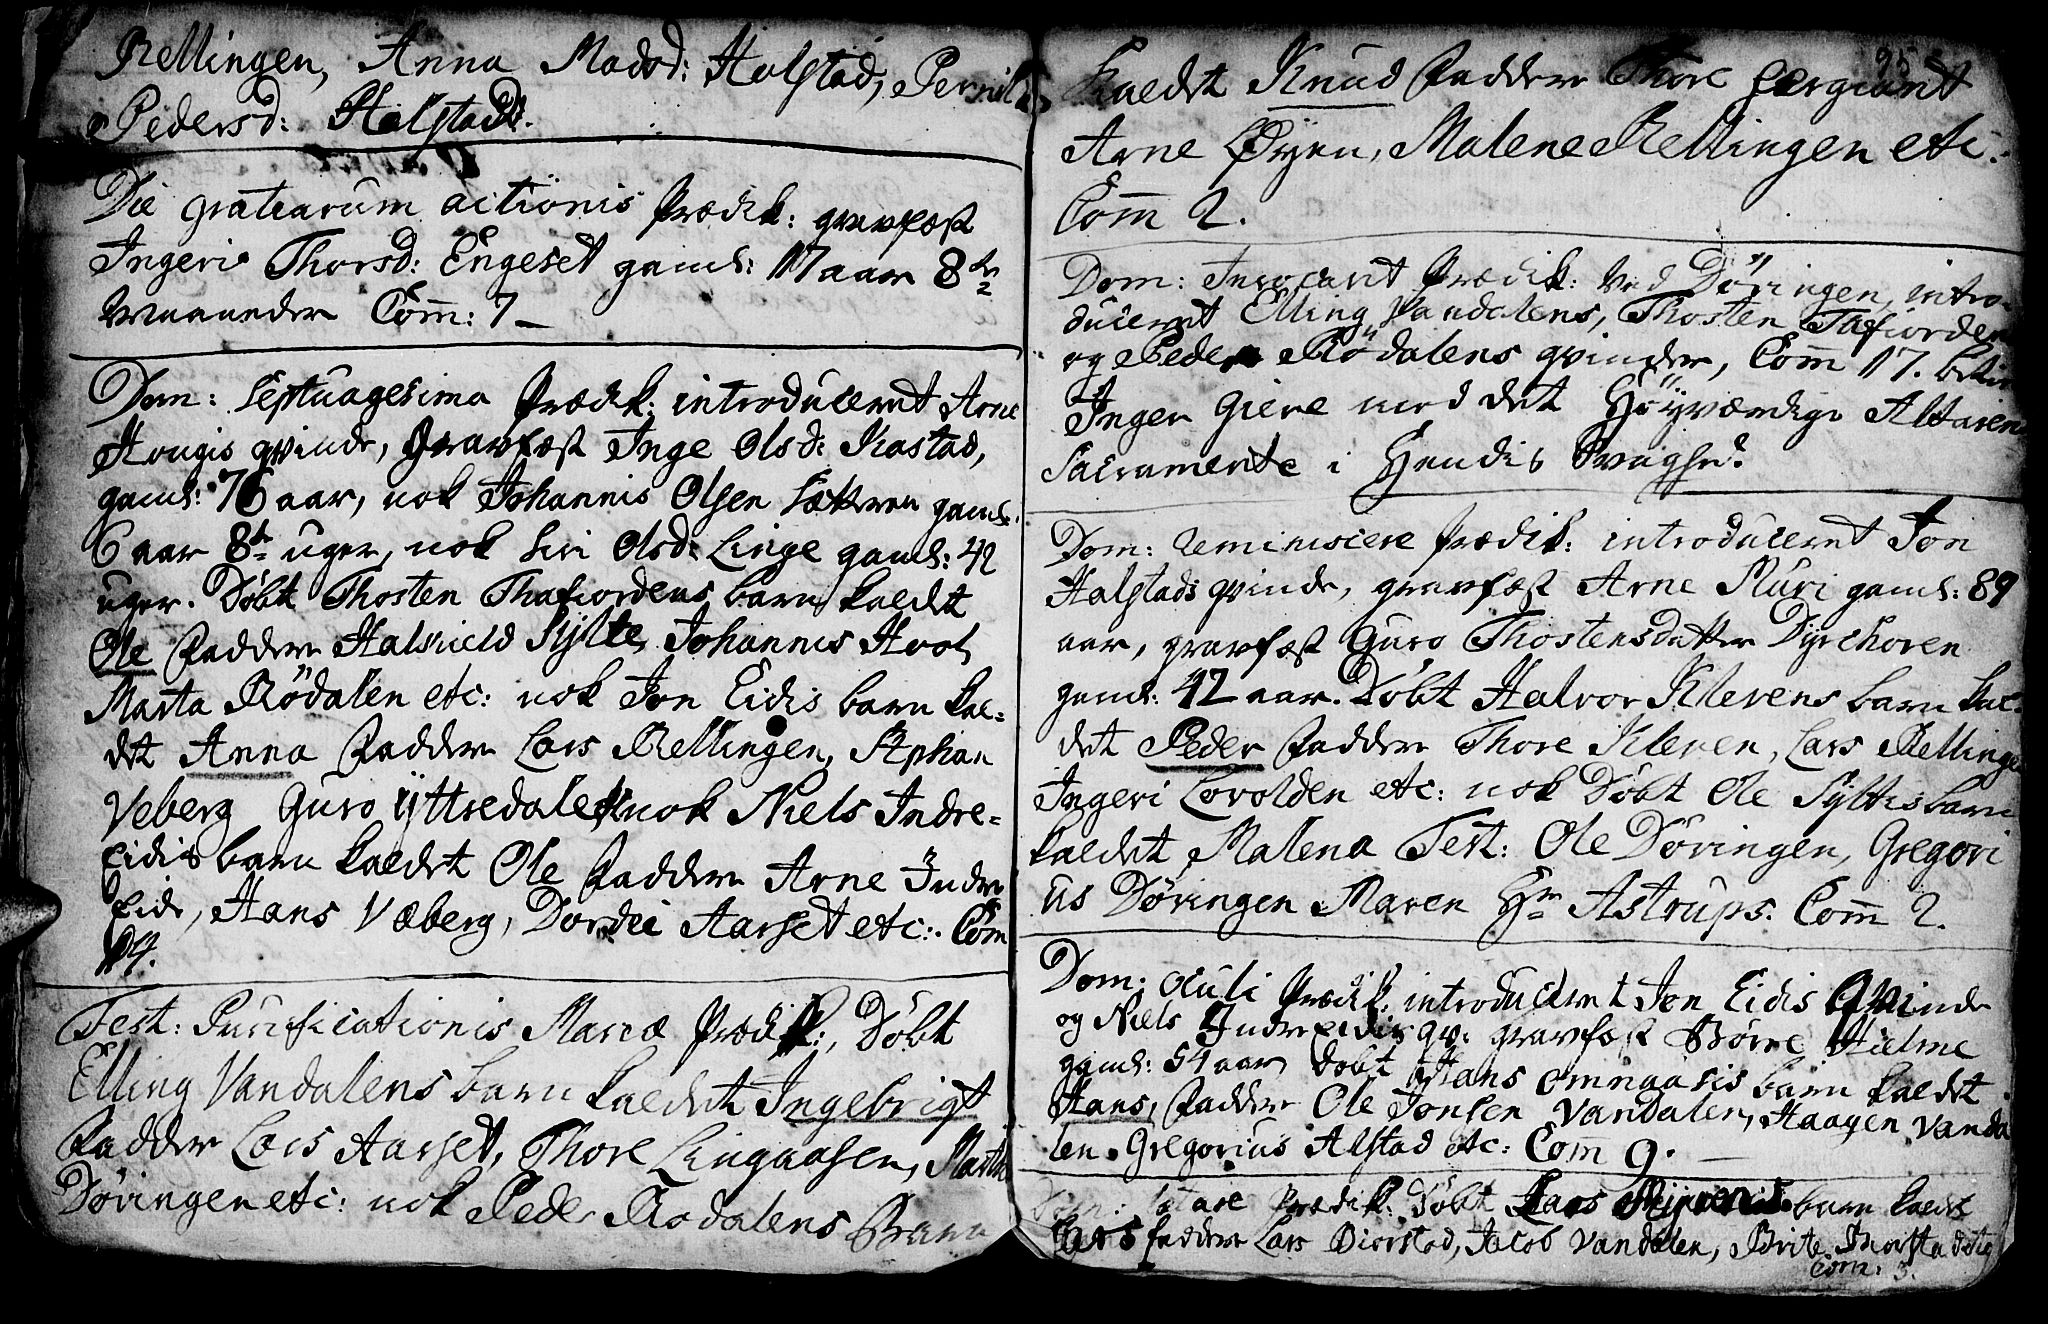 Rellingen, Anna Madsd: Halstad, Pernil
Pedersd: Halstad.
Die gratiarum actionis Prædik: gravfæst
Ingeri Thorsd: Engeset gaml: 17 aar 8te
Maaneder Comm: 7
Dom: Septuagesima Prædik: introduceret Arne
Hougis qvinde, Gravfæst Inge Olsd: Kastad,
gaml: 76 aar, nok Johannis Olsen Sætteren gaml:
6 aar 8te uger, nok Siri Olsd: Linge gaml: 42
uger. Döbt Thosten Thafiordens barn kaldet
Ole Faddere Halvield Sylte, Johannis Hool
Marta Rödalen etc: nok Jon Eidis barn kal-
det Anna Faddere Lars Rellingen, Stephan
Veberg Guro Yttredalen nok Niels Indre-
eidis barn kaldet Ole Faddere Arne Indre
Eide, Hans Væberg, Dordei Aarset etc: Com
24.
Fest: Purificationis Mariæ Prædik:, Döbt
Elling Vandalens barn kaldet Ingebrigt
Faddere Lars Aarset, Thore Lingaasen, Marthe
Döringen etc: nok Peder Rodalens Barn
95
Kaldet Knud Faddere Thore Sergiant
Arne Öyen, Malene Rellingen etc:
Comm 2.
Dom: Invocavit Prædik: ved Döringen, intro-
duceret Elling Vandalens, Thosten Tafiordens
og Peder Rödalens qvinder, Comm 17. betient
Inger Giere med det Höyværdige Altarens
Sacramente i Hendis Svaghed.
Dom: Reminiscere Prædik: introduceret Jon
Halstads qvinde, gravfæst Arne Muri gaml: 89
aar, gravfæst Guro Thostensdatter Dyrchoren
gaml: 42 aar. Döbt Halvor Klevens barn kal-
det Peder Faddere Thore Kleven, Lars Rellingen
Ingeri Lovolden etc: nok Döbt Ole Syltis barn
kaldet Malena Test: Ole Döringen, Gregori
us Döringen Maren Hr Astrups. Comm 2.
Dom: Oculi Prædik: introduceret Jon Eidis Qvinde
og Niels Indreeidis qv: gravfæst Börre Hielme
gaml: 54 aar Döbt Hans Omnaasis barn kaldet
Hans, Faddere Ole Jonsen Vandalen, Haagen Vanda
len Gregorius Alstad etc: Comm 9.
Dom: Lætare Prædik: Döbt Lars barn kaldt
Lars faddere Lars Biorstad, Jacob Vandalen, Brite Thorstad etc
Com: 3.